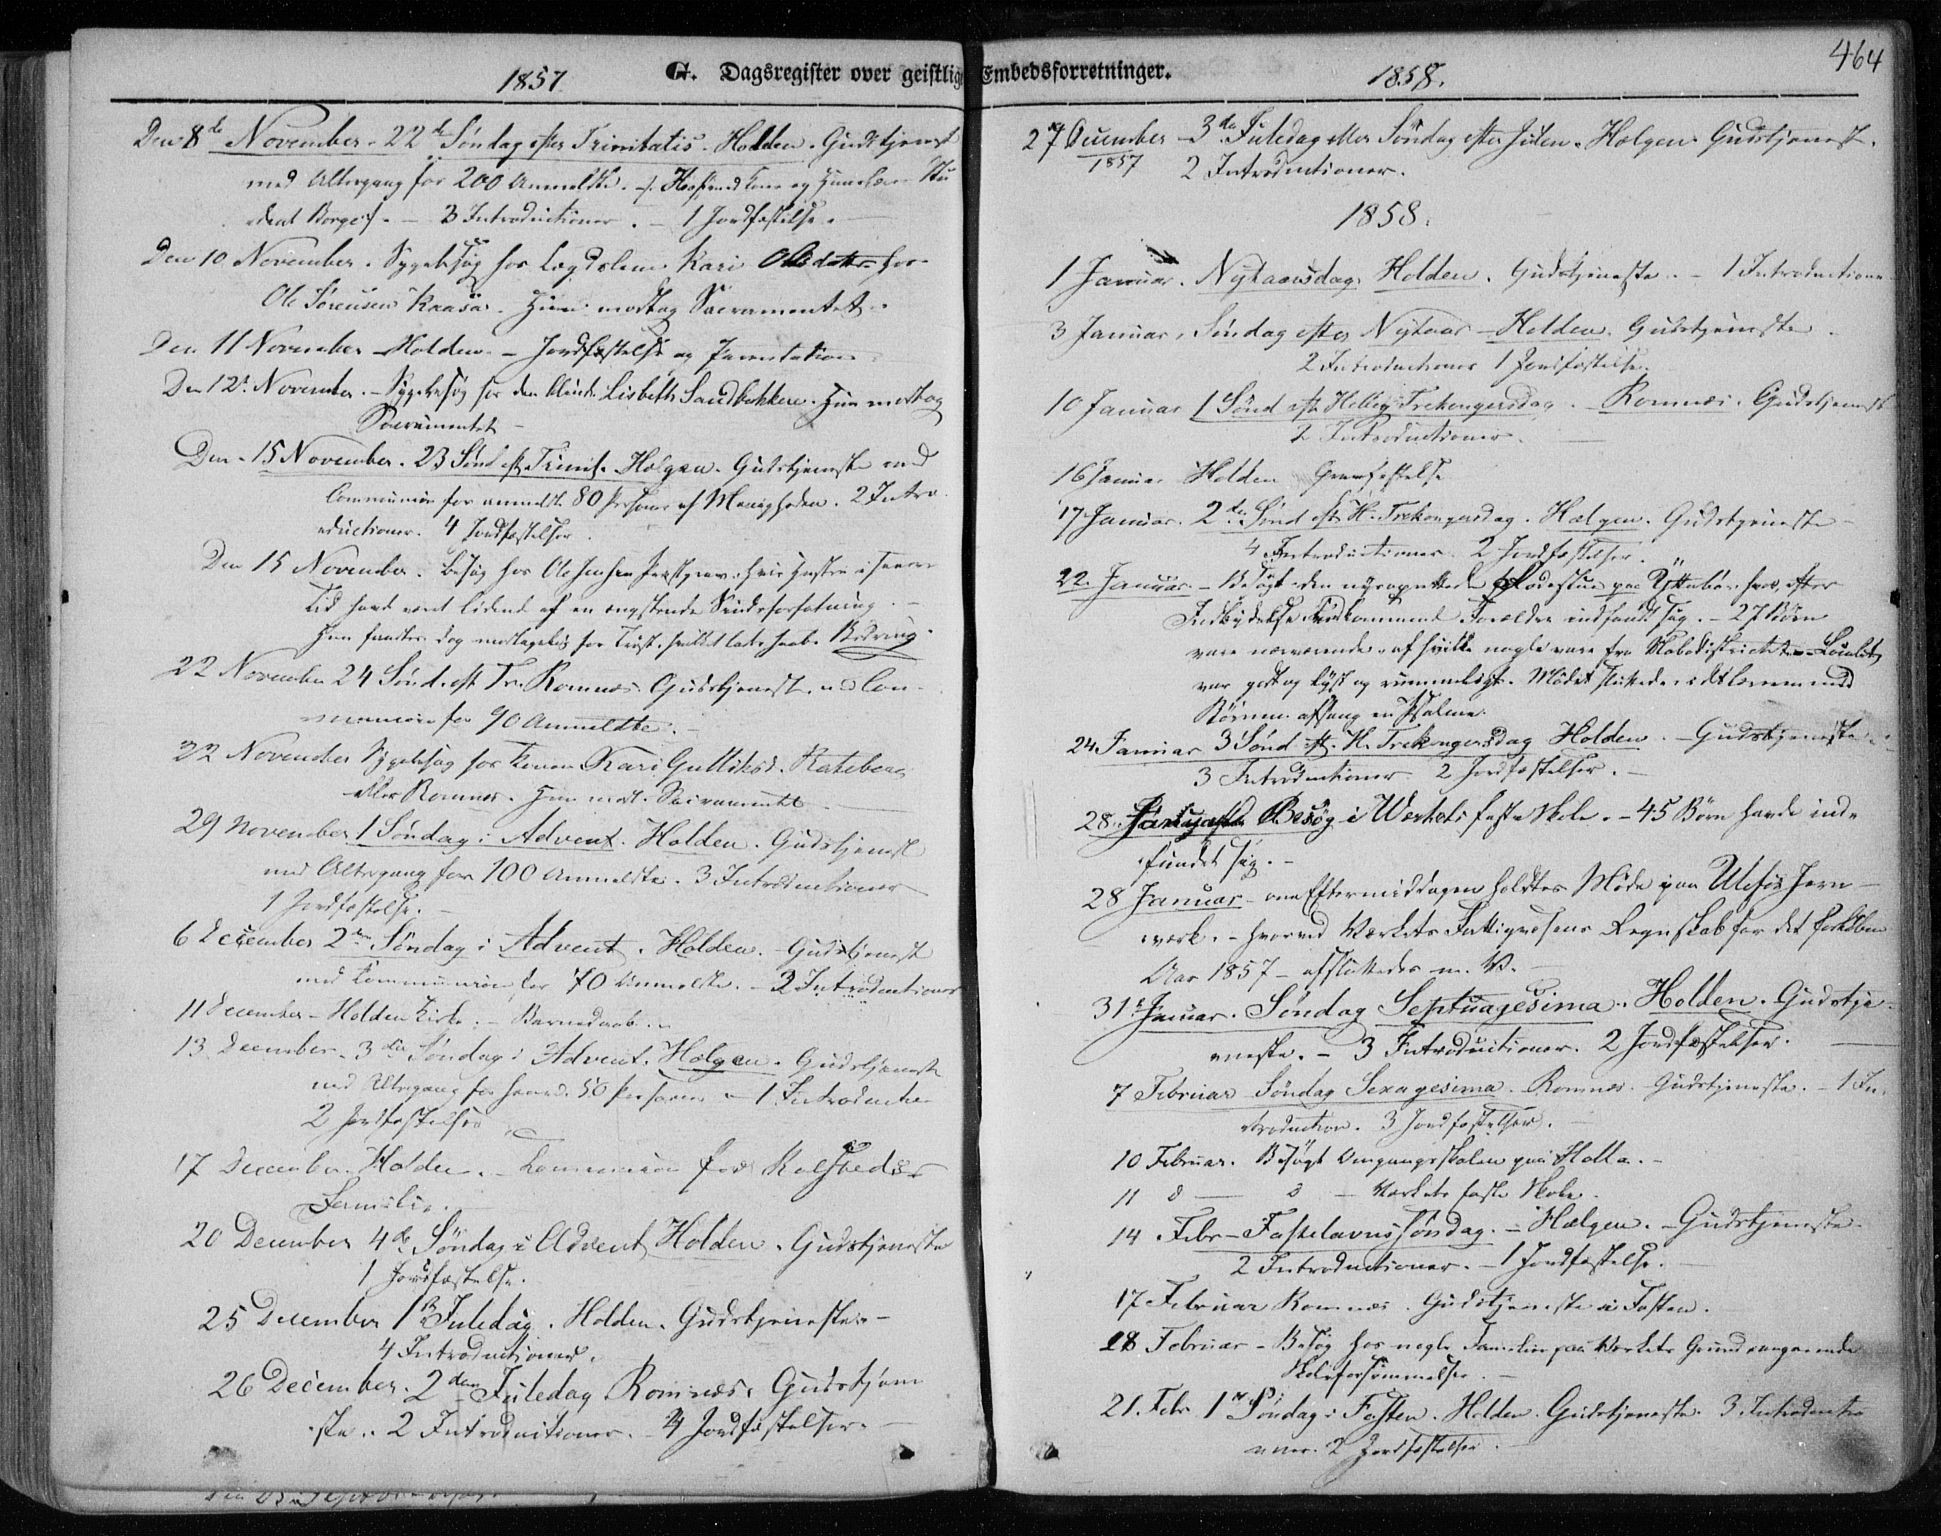 464
G. Dagsregister over geistlige Embedsforretninger.
1857
Den 8de November. 22de Søndag efter Trinitatis. Holden. Gudstjeneste
med Altergang for 200 Anmeldte.
3 Introductioner. - 1 Jordfæstelse.
Den 10 November. Sygebesøg hos Lægdslem Kari Olsdatter hos
Ole Sørensen Kaasa. Hun modtog Sacramentet.
Den 11 November Holden - Jordfæstelse og Parentation
Den 12te November. - Sygebesøg hos den blinde Lisbeth Sandbekken. Hun modtog
Sacramentet -
Den 15 November. 23 Sønd eft Trinit. Helgen. Gudstjeneste med
Communion for anmeldte 80 Personer af Menigheden. 2 Intro-
ductioner. 4 Jordfæstelser.
Den 15 November. Besøg hos Ole Jensen
Tid havde været lidende af en ængstende Sindsforfatning. -
Hun fandtes dog modtagelig for Trøst, hvilket lader haabe Bedring.
22 November 24 Sønd. eft Tr. Romnes. Gudstjeneste med Com-
munion for 90 Anmeldte. -
22 November Sygebesøg hos Konen Kari Gulliksd.
eller Romnes. Hun modt. Sacramentet
29 November 1 Søndag i Advent. Holden. Gudstjeneste
med Altergang for 100 Anmeldte. 3 Introductioner
1 Jordfæstelse. -
6 December 2den Søndag i Advent. Holden. - Gudstjeneste
med Communion for 70 Anmeldte. - 2 Introductioner
11 December - Holden Kirke. - Barnedaab. -
13 December. 3die Søndag i Advent. Helgen. Gudstjeneste
med Altergang for 50 Personer - 1 Introduction
2 Jordfæstelser
17 December. Holden. - Communion for
Familie.
20 December 4de Søndag i Advent Holden. Gudstjeneste
1 Jordfæstelse.
25 December 1ste Juledag. Holden. Gudstjeneste. -
4 Introductioner.
26 December. 2den Juledag Romnes. Gudstjene-
ste. 2 Introductioner. - 4 Jordfæstelser. -
1858.
27 December 3die Juledag eller Søndag efter Julen. Helgen Gudstjeneste.
1857 2 Introductioner.
1858.
1 Januar. Nytaarsdag. Holden. Gudstjeneste. - 1 Introduction
3 Januar, Søndag efter Nytaar - Holden. Gudstjeneste.
2 Introductioner 1 Jordfæstelse.
10 Januar 1 Sønd eft Hellig Trekongersdag. Romnes. Gudstjeneste
2 Introductioner.
16 Januar Holden Gravfæstelse
17 Januar. 2den Sønd eft H. Trekongersdag. Helgen. Gudstjeneste -
4 Introductioner 2 Jordfæstelser.
22. Januar. - Besøgt den nyoprettede Rodestue paa Ytterbø, hvor, efter
Indbydelse Forældre indfandt sig. - 27 Børn
vare nærværende, af hvilke nogle vare fra Skoledistrictet. - Localet
var godt og lyst og rummeligt. Mødet sluttede
Børnene afsang en Psalme.
24 Januar 3 Sønd eft. H. Trekongersdag Holden. - Gudstjeneste.
3 Introductioner 2 Jordfæstelser. -
28 Besøg i Værkets faste Skole. - 45 Børn havde ind-
fundet sig. -
28 Januar - om Eftermiddagen holdtes Møde paa Ulefos Jern-
værk. - hvorved Værkets Fattigvæsens Regnskab for det forløbne
Aar 1857 - afsluttedes m. V.
31te Januar. Søndag Septuagesima. Holden. Gudstje-
neste. - 3 Introductioner. 2 Jordfæstelser.
7 Februar Søndag Sexagesima. Romnes. Gudstjeneste. - 1 In-
troduction. 3 Jordfæstelser.
10 Februar. Besøgt Omgangsskolen paa Holla. -
11 d - d - Værkets faste Skole.
14 Febr - Fastelavnssøndag. - Helgen. - Gudstjeneste.
2 Introductioner. - 1 Jordfæstelse.
17 Februar Romnes. Gudstjeneste i Fasten.
18 Februar - Besøg hos nogle Familier paa Værkets Grund angaaende
Skoleforsømmelser. -
21. Febr 1ste Søndag i Fasten. Holden. Gudstjeneste. 3 Introductio-
ner. 2 Jordfæstelser.